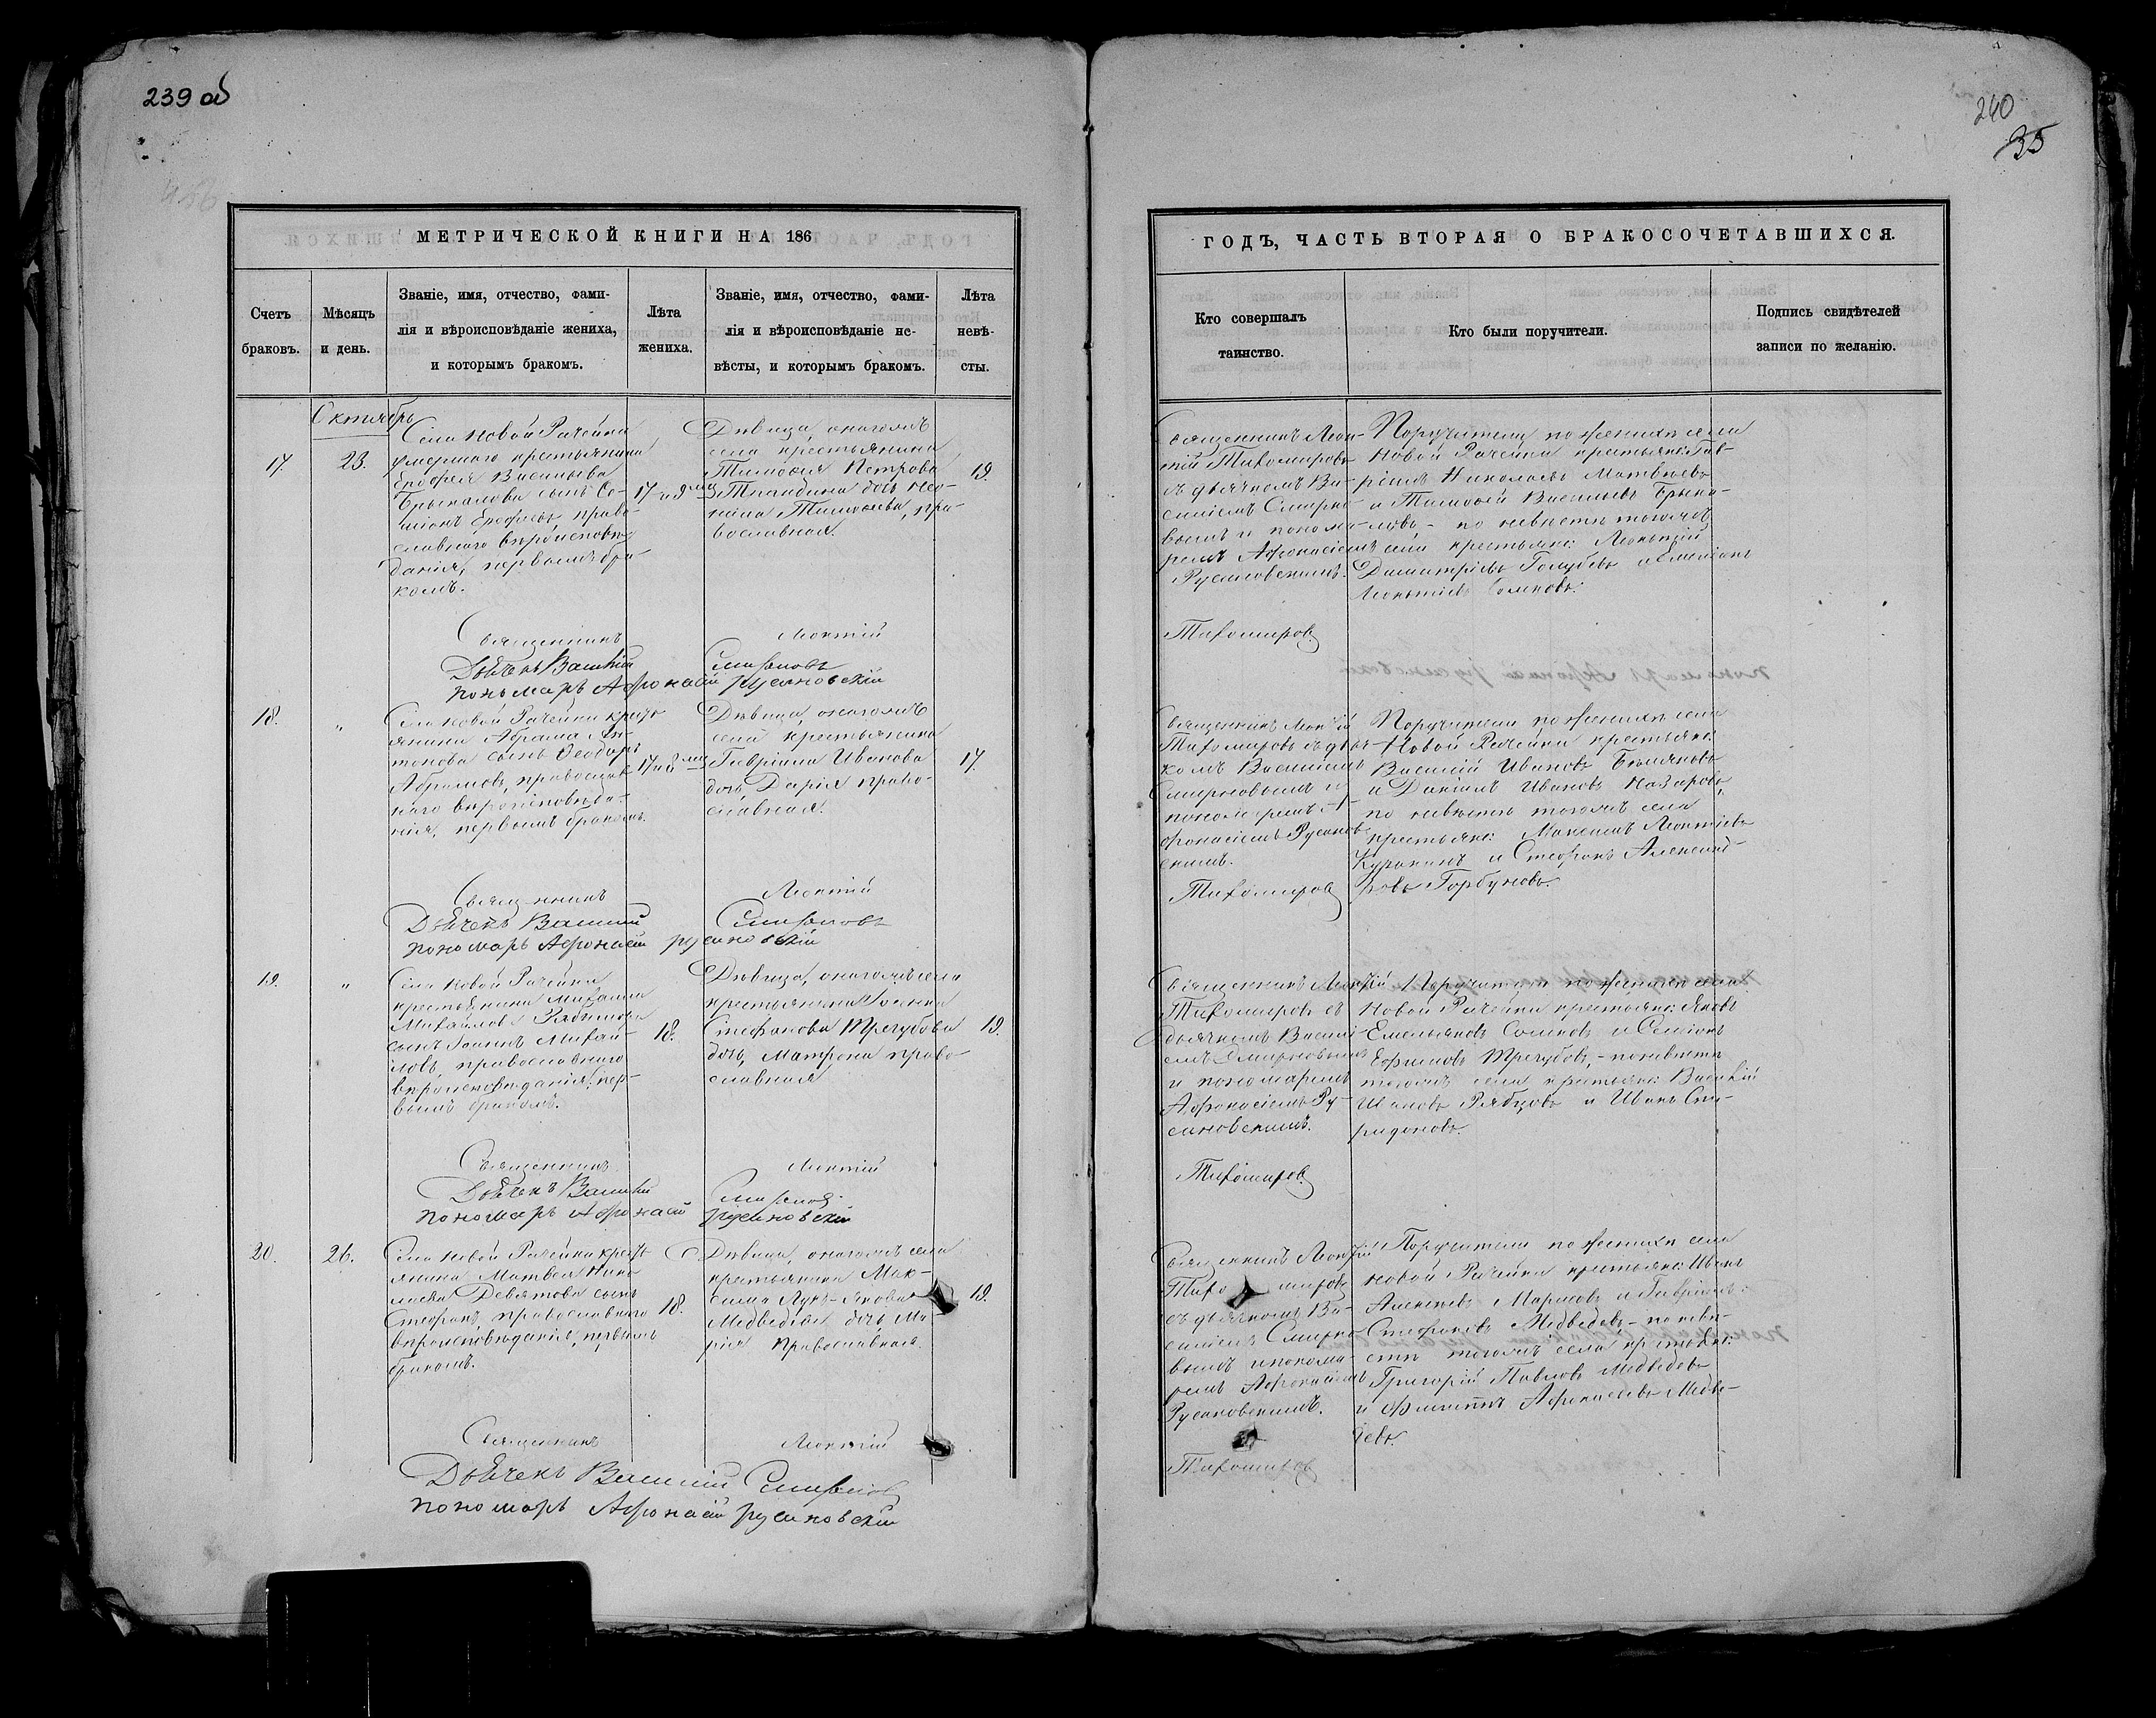 239 об
240
35
МЕТРИЧЕСКОЙ КНИГИ НА 186
Счетъ браковъ.
Мѣсяцъ и день.
Званіе, имя, отчество, фами-
лія и вѣроисповѣданіе жениха,
и которымъ бракомъ.
Лѣта
жениха.
Званіе, имя, отчество, фами-
лія и вѣроисповѣданіе не-
вѣсты, и которымъ бракомъ.
Лѣта
невѣ-
сты.
Октябрь
17.
23.
Села Новой Рачейки
умершаго крестьянина
Ерофея Васильева
Брыкалова сынъ Се-
міонъ Ерофѣевъ, право-
славнаго вѣроисповѣ-
данія, первымъ бра-
комъ.
17 и 9 мц
Дѣвица, онагожъ
села крестьянина
Тимофея Петрова
дочь Нео-
нила Тимофѣева, пра-
вославная.
19.
Священникъ Леонтій
Дьячекъ Василій Смирновъ
Пономарь Афонасій Русановскій
18.
"
Села Новой Рачейки кресть-
янина Абрама Ан-
тонова сынъ Ѳеодоръ
Абрамовъ, православ-
наго вѣроисповѣда-
нія, первымъ бракомъ.
17 и 8 мц
Дѣвица, онагожъ
села крестьянина
Гавріила Иванова
дочь Дарія право-
славная.
17.
Священникъ Леонтій
Дьячекъ Василій Смирновъ
Пономарь Афонасій Русановскій
19.
"
Села Новой Рачейки
крестьянина Михаила
Михайлова
сынъ Іоаннъ Михай-
ловъ, православнаго
вѣроисповѣданія, пер-
вымъ бракомъ.
18.
Дѣвица, онагожъ села
крестьянина Іоанна
Стефанова Трегубова
дочь, Матрона право-
славная
19.
Священникъ Леонтій
Дьячекъ Василій Смирновъ
Пономарь Афонасій Русановскій
20.
26.
Села Новой Рачейки кресть-
янина Матвея Нико-
лаева Девятова сынъ
Стефанъ, православнаго
вѣроисповѣданія, первымъ
бракомъ.
18.
Дѣвица, онагожъ села
крестьянина Мак-
сима
Медведева дочь Ма-
рія православная.
19.
Священникъ Леонтій
Дьячекъ Василій Смирновъ
Пономарь Афонасій Русановскій
ГОДЪ, ЧАСТЬ ВТОРАЯ О БРАКОСОЧЕТАВШИХСЯ.
Кто совершалъ
таинство.
Кто были поручители.
Подпись свидѣтелей
записи по желанію.
Священникъ Леон-
тій Тихомировъ
съ дьячкомъ Ва-
силіемъ Смирно-
вымъ и понома-
ремъ Афонасіемъ
Русановскимъ.
Тихомировъ
Поручители по женихѣ села
Новой Рачейки крестьяне: Гав-
ріилъ Николаевъ Матвѣевъ
и Тимофей Васильевъ Брыка-
ловъ - по невѣстѣ тогожъ
села крестьяне: Леонтій
Димитріевъ Голубевъ и Емеліанъ
Леонтіевъ Сомковъ.
Священникъ Леонтій
Тихомировъ съ дьяч-
комъ Василіемъ
Смирновымъ и
пономаремъ А-
фонасіемъ Русанов-
скимъ.
Тихомировъ
Поручители по женихѣ села
Новой Рачейки крестьяне:
Василій Ивановъ
и Даніилъ Ивановъ Назаровъ,
по невѣстѣ тогожъ села
крестьяне: Максимъ Леонтіевъ
Куракинъ и Стефанъ Александ-
ровъ Горбуновъ.
Священникъ Леонтій
Тихомировъ съ
дьячкомъ Васили-
емъ Смирновымъ
и пономаремъ
Афонасіемъ Ру-
сановскимъ.
Тихомировъ
Поручители по женихѣ села
Новой Рачейки крестьяне: Яковъ
Емельяновъ Сомковъ и Семіонъ
Ефимовъ Трегубовъ, - по невѣстѣ
тогожъ села крестьяне: Василій
Ивановъ Рябцовъ и Иванъ Спи-
ридоновъ.
Священникъ Леонтій
Тихомировъ
съ дьячкомъ Ва-
силіемъ Смирно-
вымъ и понома-
ремъ Афонасіемъ
Русановскимъ.
Тихомировъ
Поручители по женихѣ села
Новой Рачейки крестьяне: Иванъ
Алексѣевъ и Гавріилъ
Стефановъ Медведевъ - по невѣ-
стѣ тогожъ села крестьяне:
Григорій Павловъ Медведевъ
и Филиппъ Афонасьевъ Медве-
девъ.